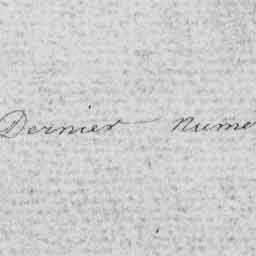 Dernier numé